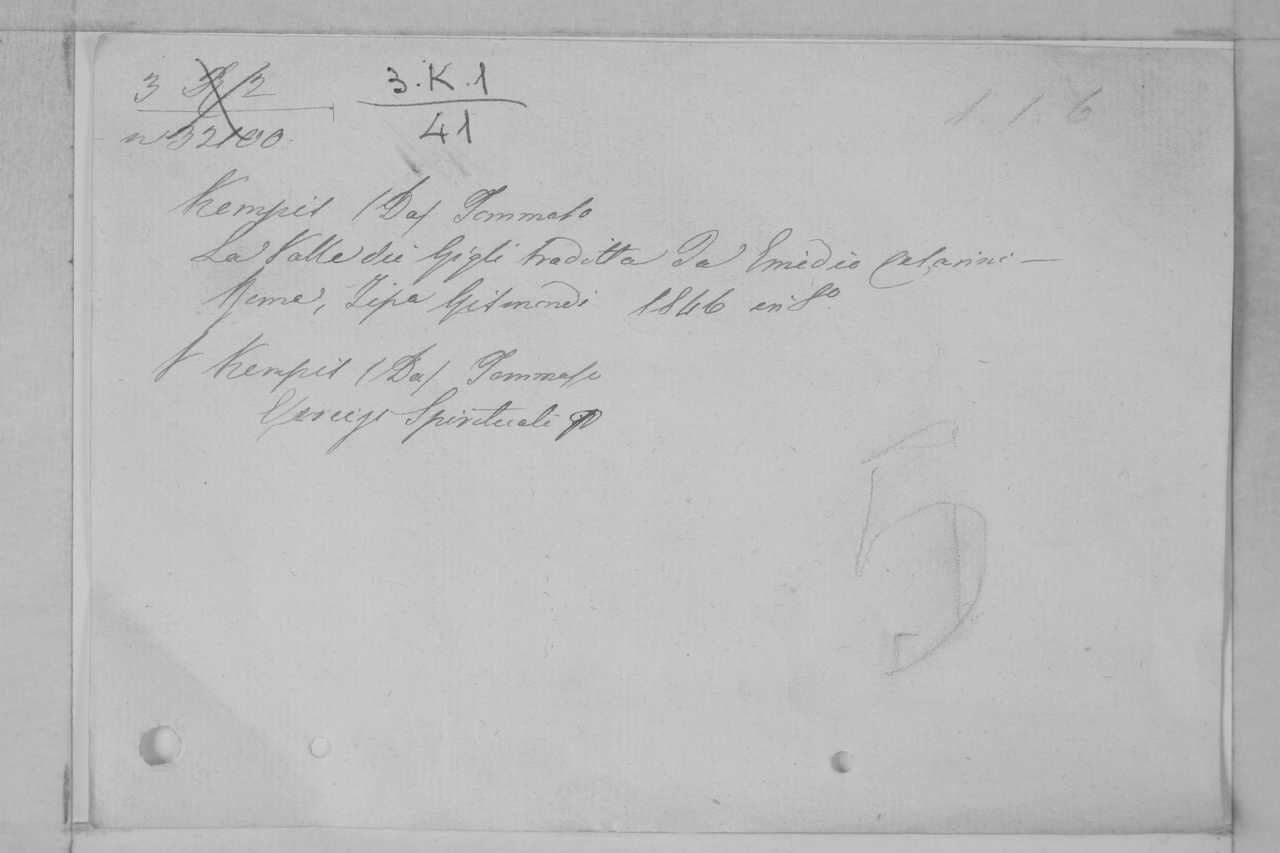 3 3/2
n° 32100.
3.K.1
41
1. 1. 6
Kempis (Da) Tommaso
La Valle dei Gigli tradotta da Emidio
Roma, Tipa Gismondi 1846 in 8°
Kempis (Da) Tommaso
Esercizi Spirituali
5